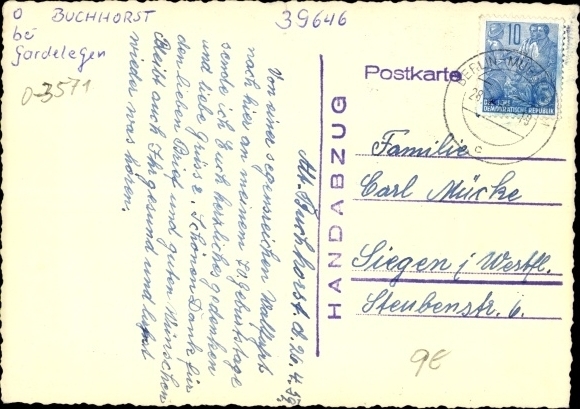 O BUCHHORST
bei
Gardelegen
O-3571
39646
Postkarte
HANDABZUG
10
DEUTSCHE
DEMOKRATISCHE REPUBLIK
Familie
Carl Mücke
Siegen i/Westfl.
Steubenstr. 6.
9E
Alt. Buchhorst. d. 26. 4. 59
Von einer segensreichen Wallfahrt
nach hier an meinem Tage
sende ich Euch herzliche gedenken
und liebe grüsse. Schönen Dank für
den lieben Brief und guten Wünschen
Bleibt auch Ihr gesund und
wieder was hören.